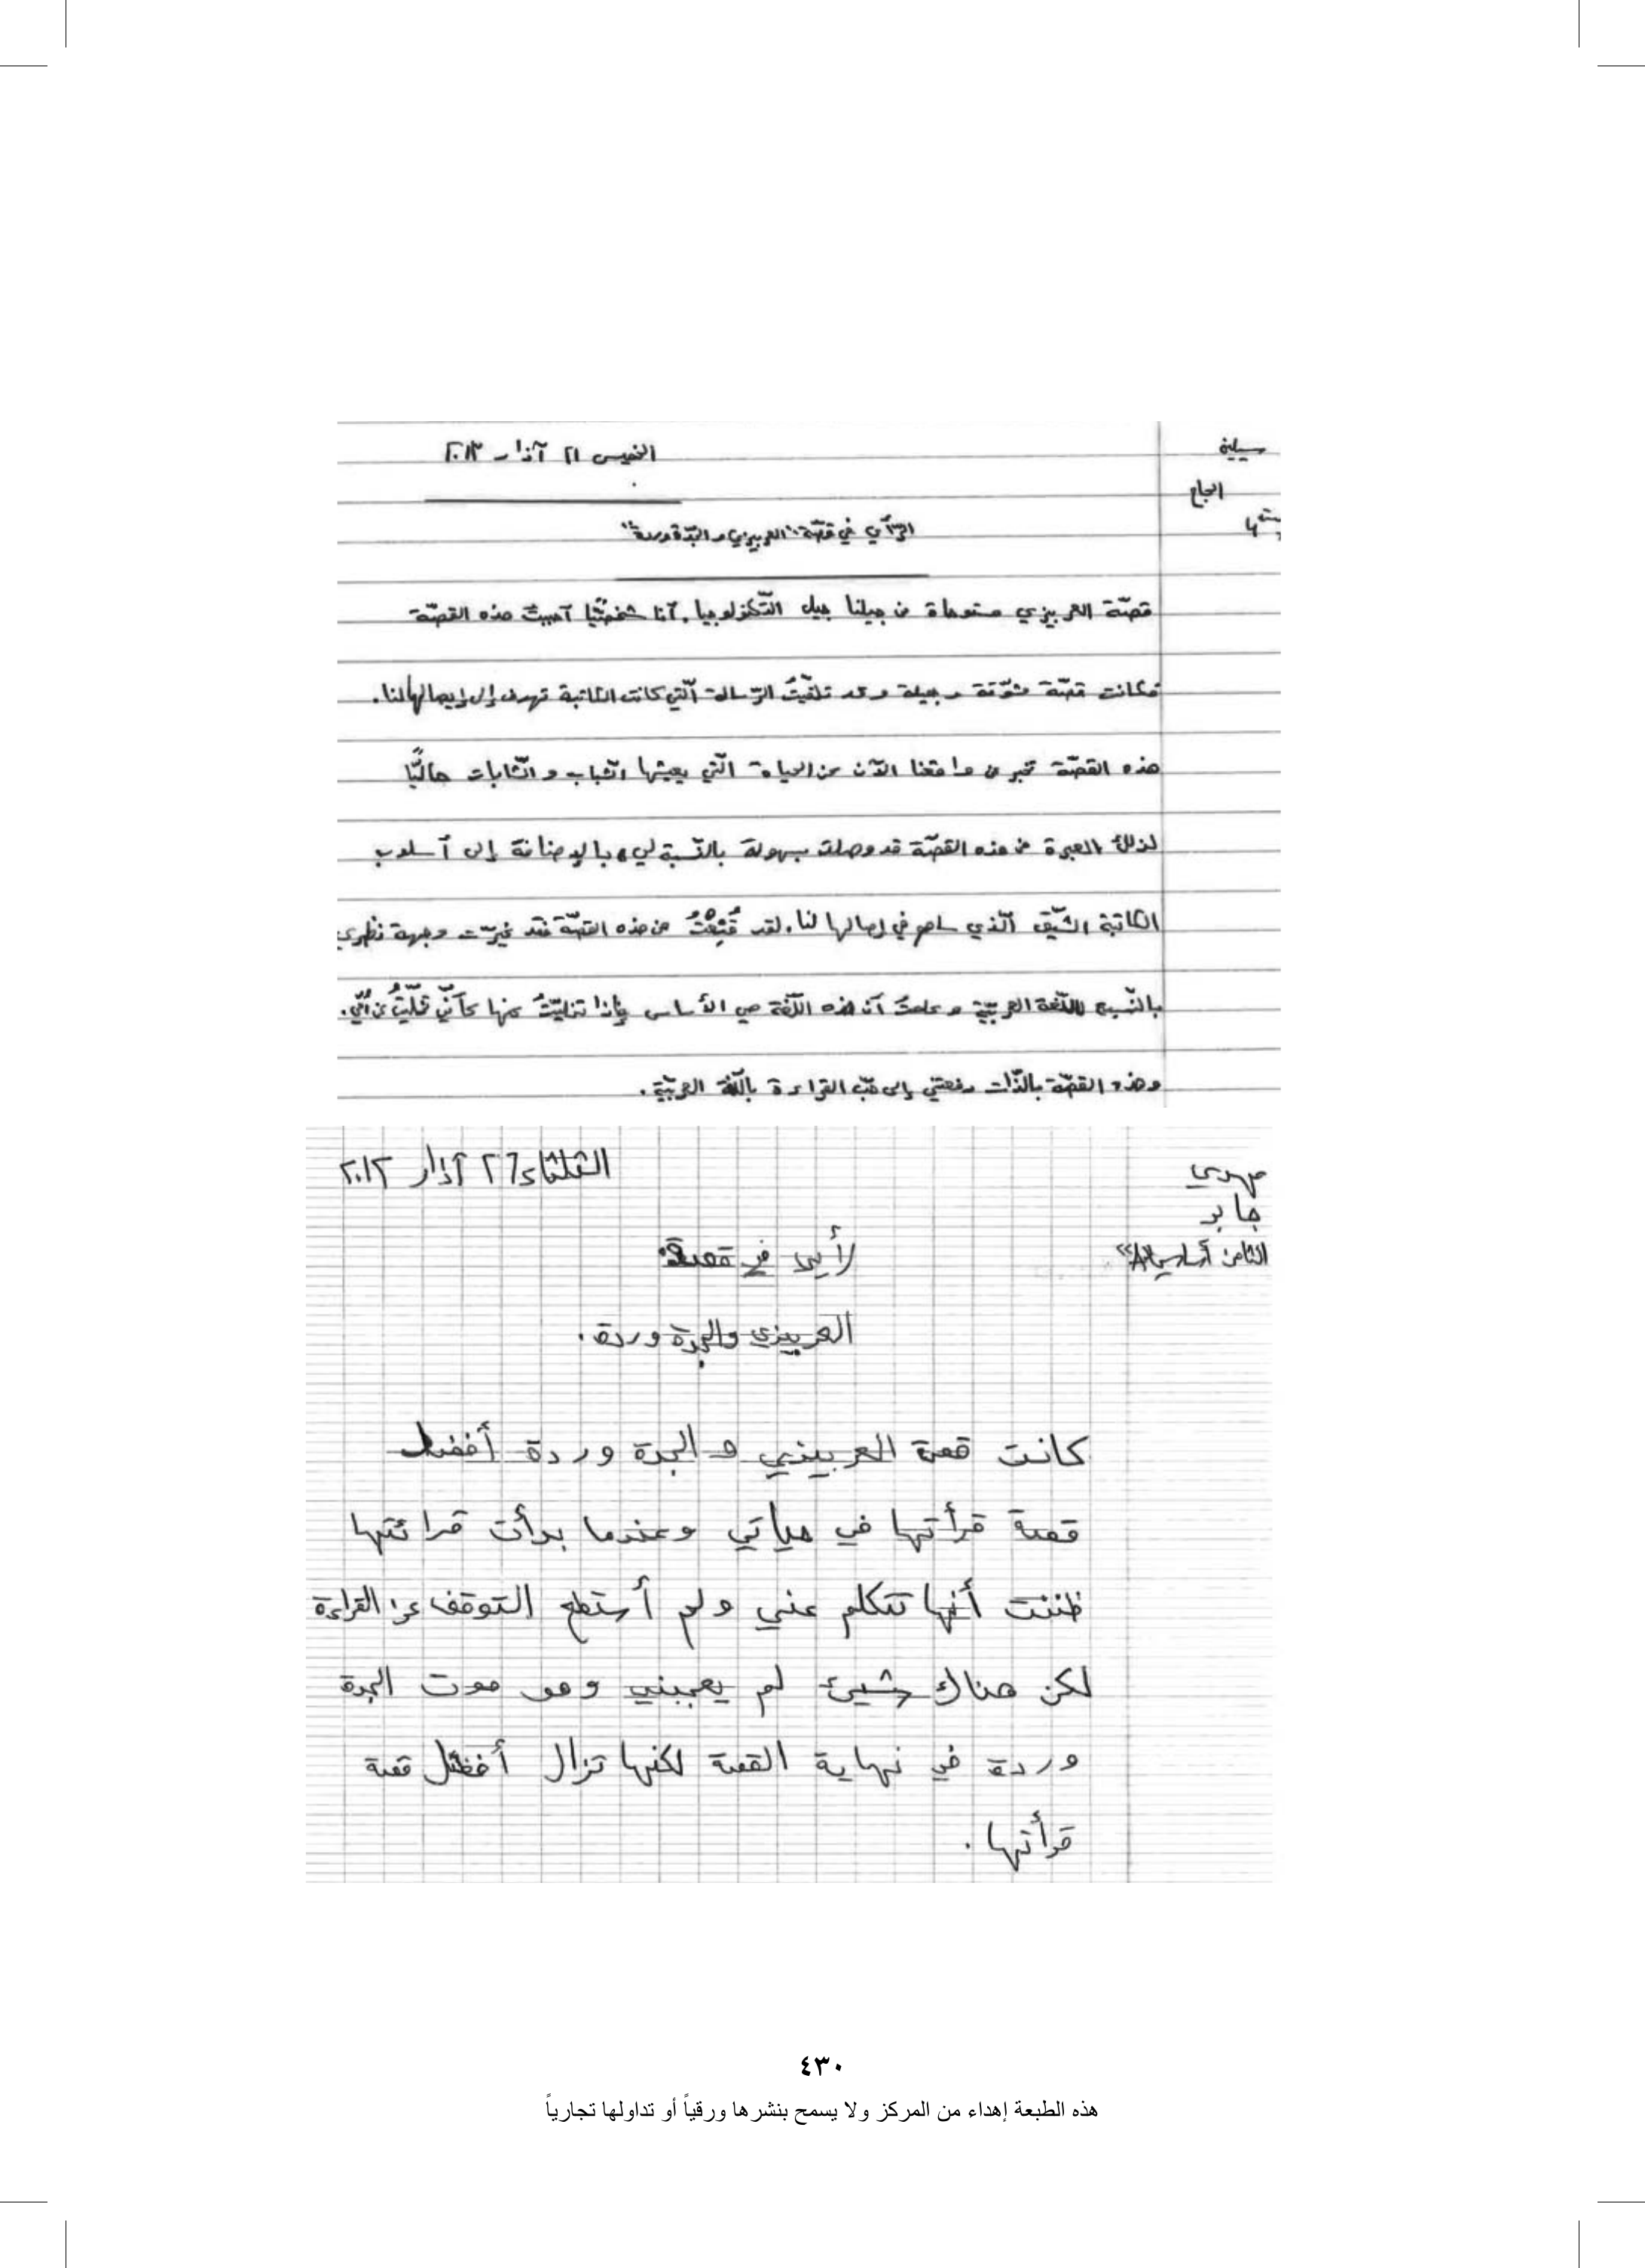 الخميس ٢١ آذار ٢٠١٣
الحاج
الرّأي في قصّة: "العربيزي والجدّة وردة"
قصّة العربيزي مستوحاة من جيلنا جيل التّكنولوجيا. أنا شخصيًّا أحببتُ هذه القصّة
فكانت قصّة مشوّقة وجميلة وقد تلقّيتُ الرّسالة الّتي كانت الكاتبة تهدف إلى إيصالها لنا.
هذه القصّة تعبر عن واقعنا الآن عن الحياة الّتي يعيشها الشّباب و الشّابات حاليًّا
لذلك العبرة من هذه القصّة قد وصلت بسهولة بالنّسبة لي، بالإضافة إلى أسلوب
الكاتبة الشّيّق الّذي ساهم في إصالها لنا. لقد من هذه القصّة فقد غيرّت وجهة نظري
للّغة العربيّة و علمتُ أن هذه اللّغة هي الأساس وإذا تخليّتُ عنها كأنّي تخلّيتُ عن أمّي.
وهذه القصّة بالذّات دفعتني إلى حبّ القراءة باللّغة العربيّة.
مهدي
جابر
الثامن أساسي "A"
الثلثاء ٢٦ آذار ٢٠١٣
رأيي في قصة:
العربيزي والجدة وردة.
كانت قصة العربيزي و الجدة وردة أفضل
قصة قرأتها في حياتي وعندما بدأت قرائتها
ظننت أنها تتكلم عني ولم أستطع التوقف عن القراءة
لكن هناك شيئ لم يعجبني وهو موت الجدة
وردة في نهاية القصة لكنها تزال أفضل قصة
قرأتها.
٤٣٠
هذه الطبعة إهداء من المركز ولا يسمح بنشرها ورقياً أو تداولها تجارياً